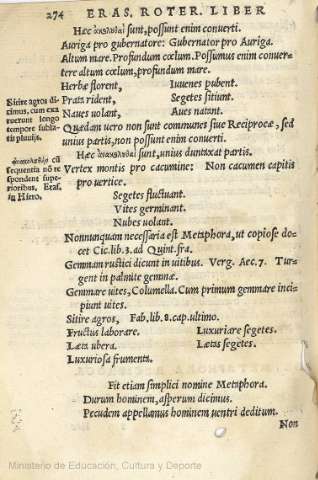 274 ERAS. ROTER. LIBER
Hæc sunt, possunt enim conuerti.
Auriga pro gubernatore: Gubernator pro Auriga.
Altum mare. Profundum cœlum. Possumus enim conuer-
tere altum cœlum, profundum mare.
Herbæ florent, Iuuenes pubent.
Prata rident, Segetes sitiunt.
Naues volant, Aues natant.
Quædam vero non sunt communes siue Reciprocæ, sed
unius partis, non possunt enim conuerti.
Hæc sunt, unius duntaxat partis.
Vertex montis pro cacumine: Non cacumen capitis
pro vertice.
Segetes fluctuant.
Vites germinant.
Nubes volant.
Nonnunquam necessaria est Metaphora, ut copiose do-
cet Cic. lib. 8. ad Quint. fra.
Gemmam rustici dicunt in uitibus. Verg. Aec. 7. Tur-
gent in palmite gemmæ.
Gemmare uites, Columella. Cum primum gemmare inci-
piunt uites.
Sitire agros, Fab. lib. 8. cap. ultimo.
Fructus laborare. Luxuriare segetes.
Læta ubera. Lætas segetes.
Luxuriosa frumenta.
Fit etiam simplici nomine Metaphora.
Durum hominem, asperum dicimus.
Pecudem appellamus hominem uentri deditum.
Non
Sitire agros di-
cimus, cum exa
ruerunt longo
tempore subla-
tis pluuijs.
cū
sequentia nō re
spondent supe-
rioribus, Eras.
in Hiero.
Ministerio de Educación, Cultura y Deporte